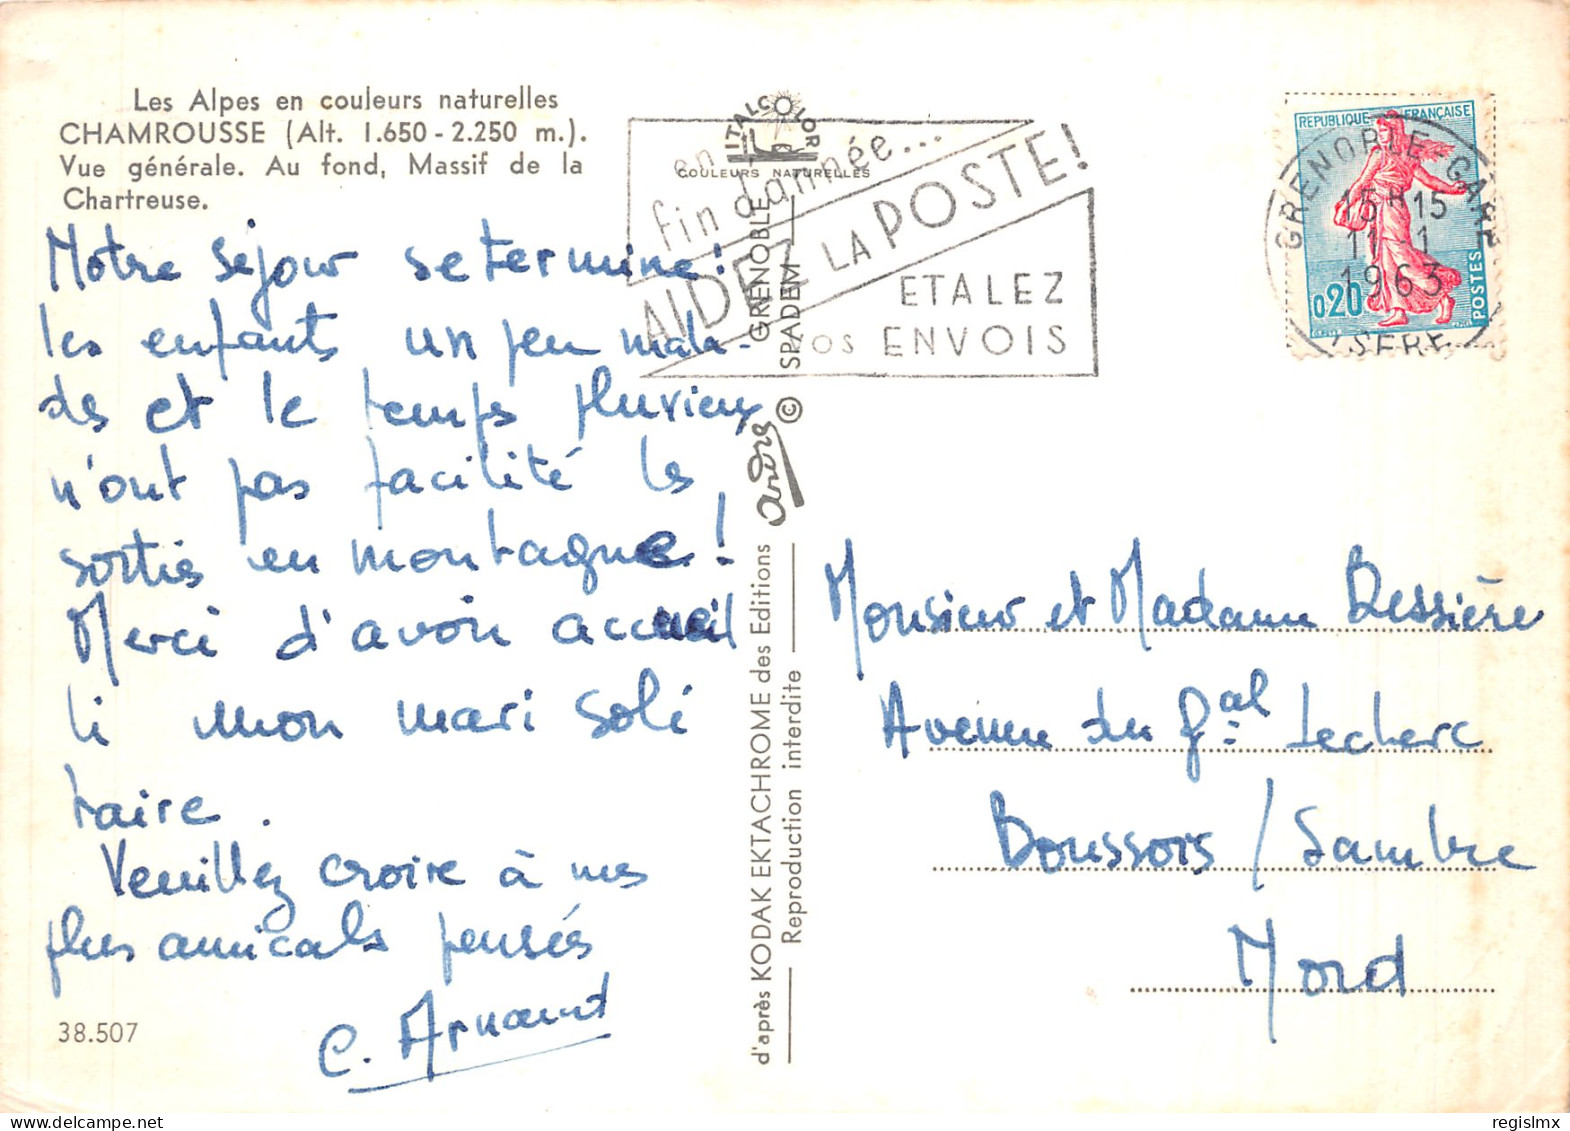 Les Alpes en couleurs naturelles
CHAMROUSSE (Alt. 1.650 - 2.250 m.).
Vue générale. Au fond, Massif de la
Chartreuse.
Notre séjour se termine :
les enfants un peu mala-
des et le temps pluvieux
n'ont pas facilité les
sorties en montagne !
Merci d'avoir accueil
li mon mari soli
taire.
Veuillez croire à mes
plus amicals pensés
C. Arnaud
38.507
ITALCOLOR
COULEURS NATURELLES
en
fin d'année...
AIDEZ LA POSTE !
ETALEZ
vos ENVOIS
d'après KODAK EKTACHROME des Editions André GRENOBLE
Reproduction interdite © SPADEM
REPUBLIQUE FRANÇAISE
0,20
POSTES
GRENOBLE-GARE
15H15
11-1
1963
ISERE
Monsieur et Madame Bessière
Avenue du Gal Leclerc
Boussois / Sambre
Nord
regislmx